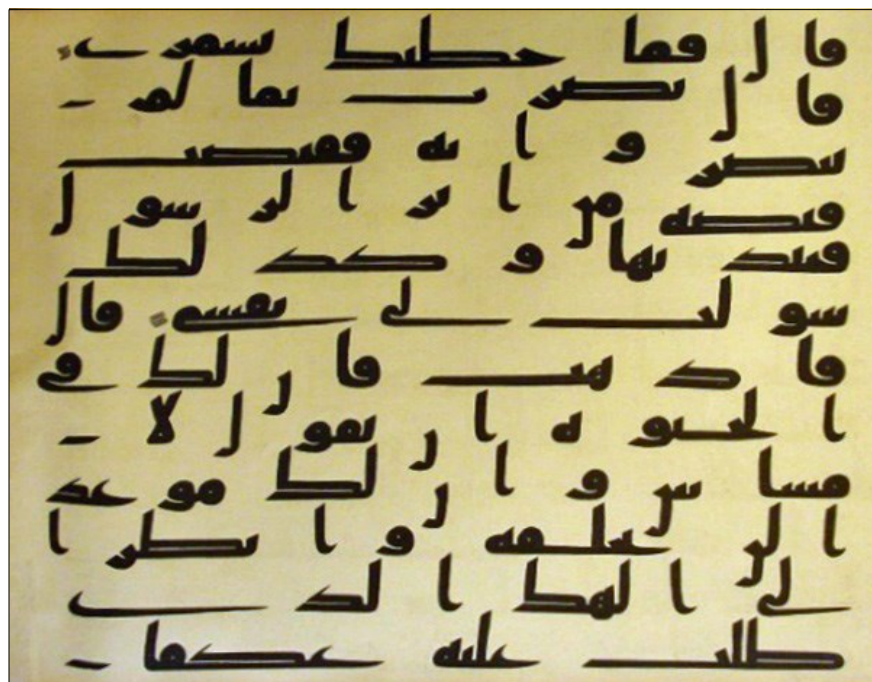 قال فما خطبك يسمرى
قال بصرت بما لم
يبصروا به فقبضت
قبضة من اثر الرسول
فنبذتها وكذلك
سولت لى نفسى قال
فاذهب فان لك فى
الحيوة ان تقول لا
مساس وان لك موعد
ا لن تخلفه وانظر ا
لى الهك الذى
ظلت عليه عكفا